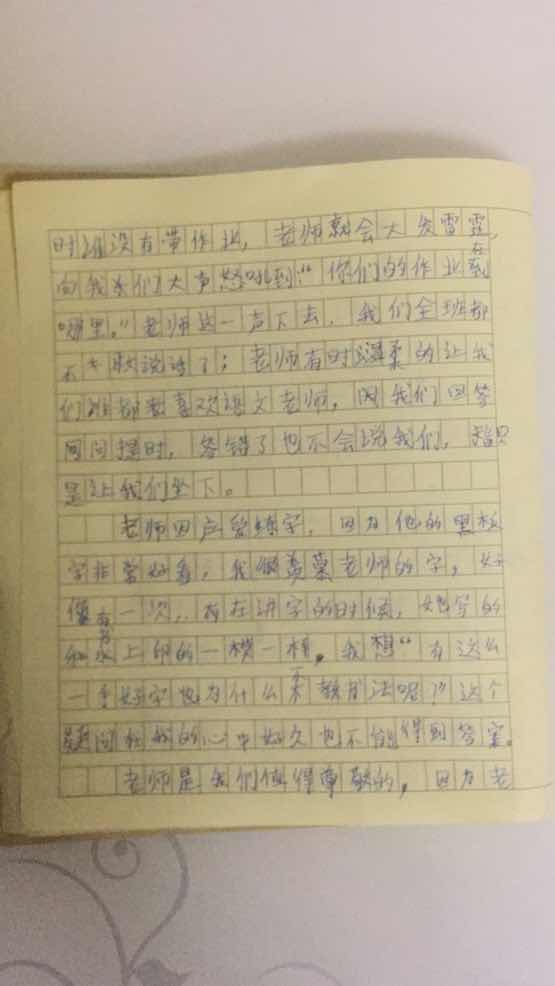 时谁没有带作业，老师就会大发雷霆，
向我们大声怒吼到：“你们的作业在
哪里。”老师这一声下去，我们全班都
不敢说话了；老师有时温柔的让我
们都喜欢语文老师，因我们回答
问题时，答错了也不会说我们，只
是让我们坐下。
老师因应练字，因为他的黑板
字非常好看，我很羡慕老师的字，好
像有一次，在讲字的时候，她写的
和书上印的一模一样。我想“有这么
一手好字也为什么不教书法呢？”这个
疑问在我的心中好久也不能得到答案。
老师是我们值得尊敬的，因为老